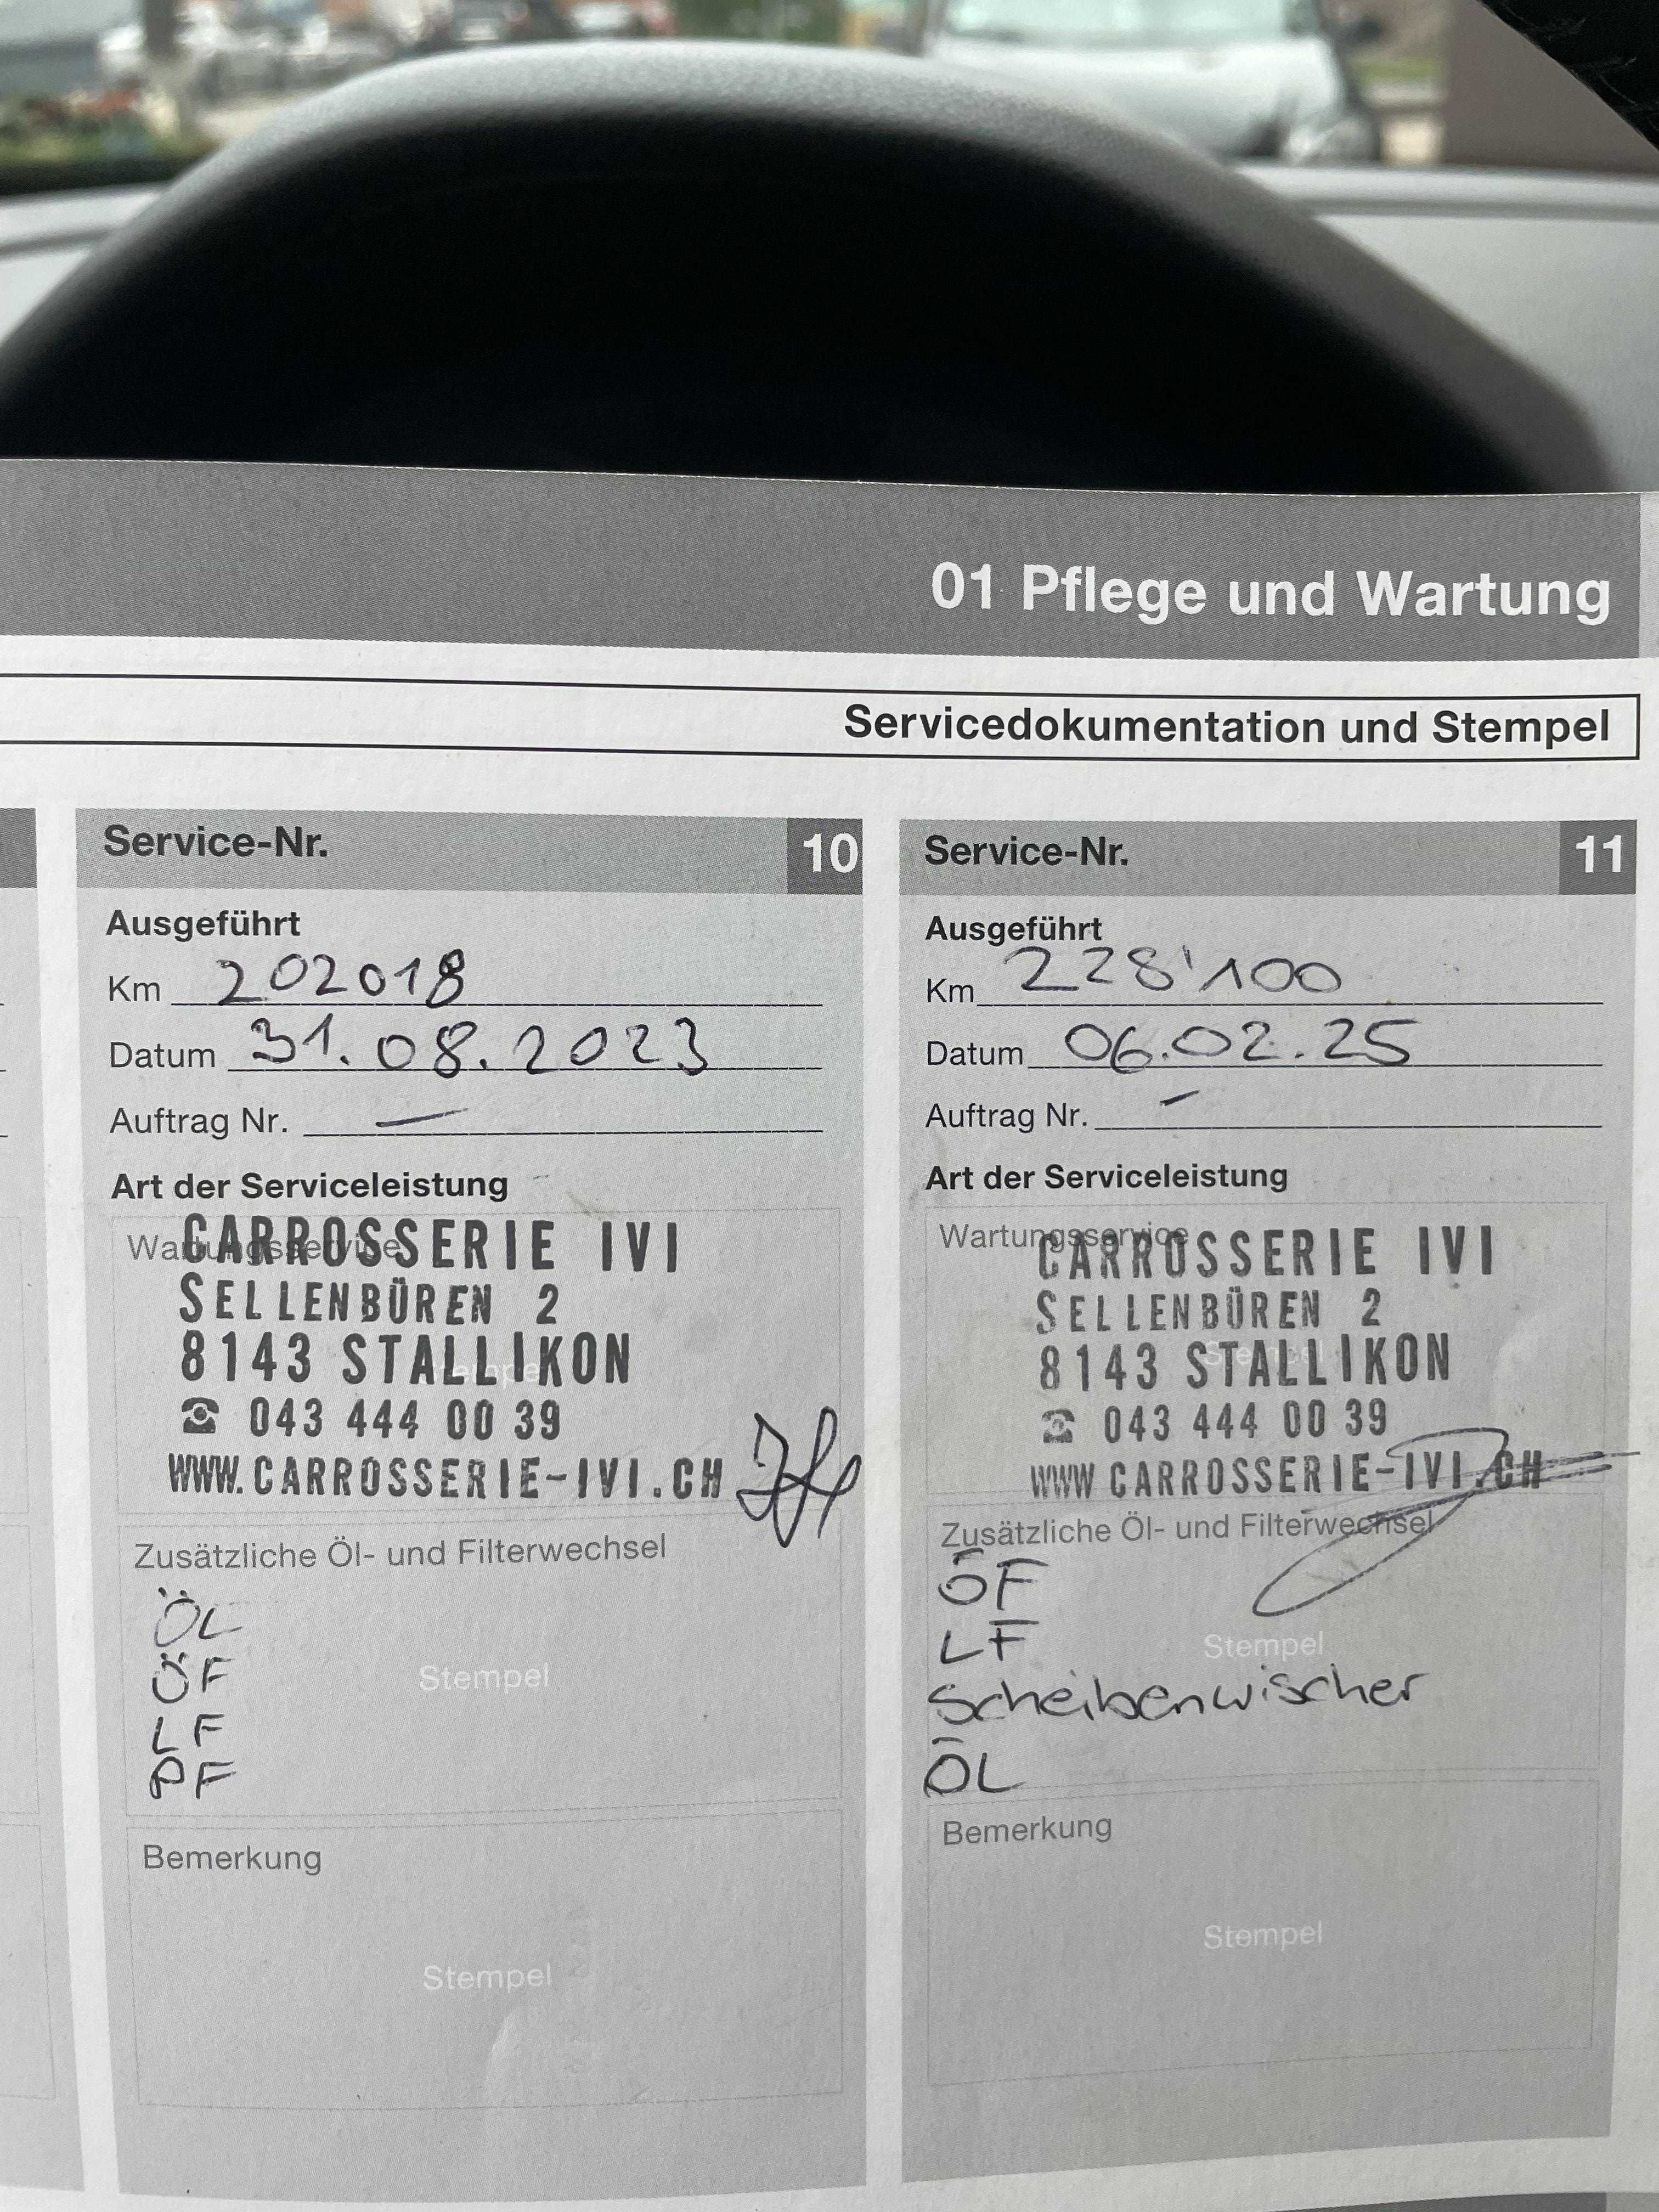 01 Pflege und Wartung
Servicedokumentation und Stempel
Service-Nr. 10
Ausgeführt
Km 202018
Datum 31.08.2023
Auftrag Nr. —
Art der Serviceleistung
Wartungsservice
CARROSSERIE IVI
SELLENBÜREN 2
8143 STALLIKON
☎ 043 444 00 39
WWW.CARROSSERIE-IVI.CH
Zusätzliche Öl- und Filterwechsel
ÖL
ÖF
Stempel
LF
PF
Bemerkung
Stempel
Service-Nr. 11
Ausgeführt
Km 228'100
Datum 06.02.25
Auftrag Nr. -
Art der Serviceleistung
Wartungsservice
CARROSSERIE IVI
SELLENBÜREN 2
8143 STALLIKON
☎ 043 444 00 39
WWW CARROSSERIE-IVI.CH
Zusätzliche Öl- und Filterwechsel
ÖF
LF
Stempel
Scheibenwischer
ÖL
Bemerkung
Stempel